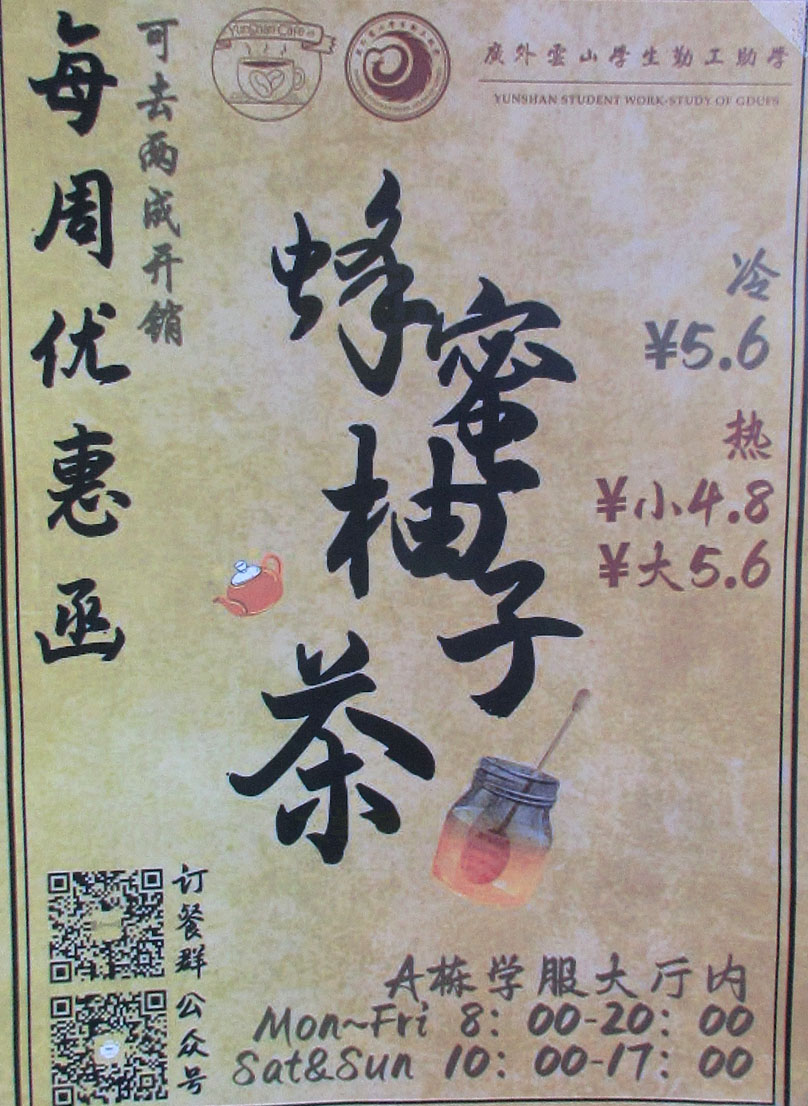 每周优惠函
可去两成开销
Yunshan Cafe
廣外雲山學生勤工助學
YUNSHAN STUDENT WORK-STUDY OF GDUFS
蜂蜜柚子茶
冷
¥5.6
热
¥小4.8
¥大5.6
订餐群
公众号
A栋学服大厅内
Mon~Fri 8：00-20：00
Sat&Sun 10：00-17：00